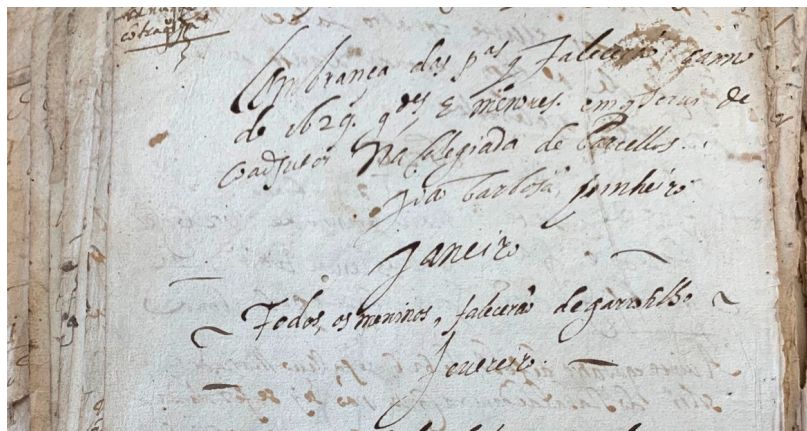 Lembrança das p.as q falecerão
de 1629. q des E menores. em q serui de
Coadjutor Na Colegiada de Barcellos.
João barbosa pinheiro
Janeiro
Todos, os meninos, falecerão de garrotilho
feuereiro.